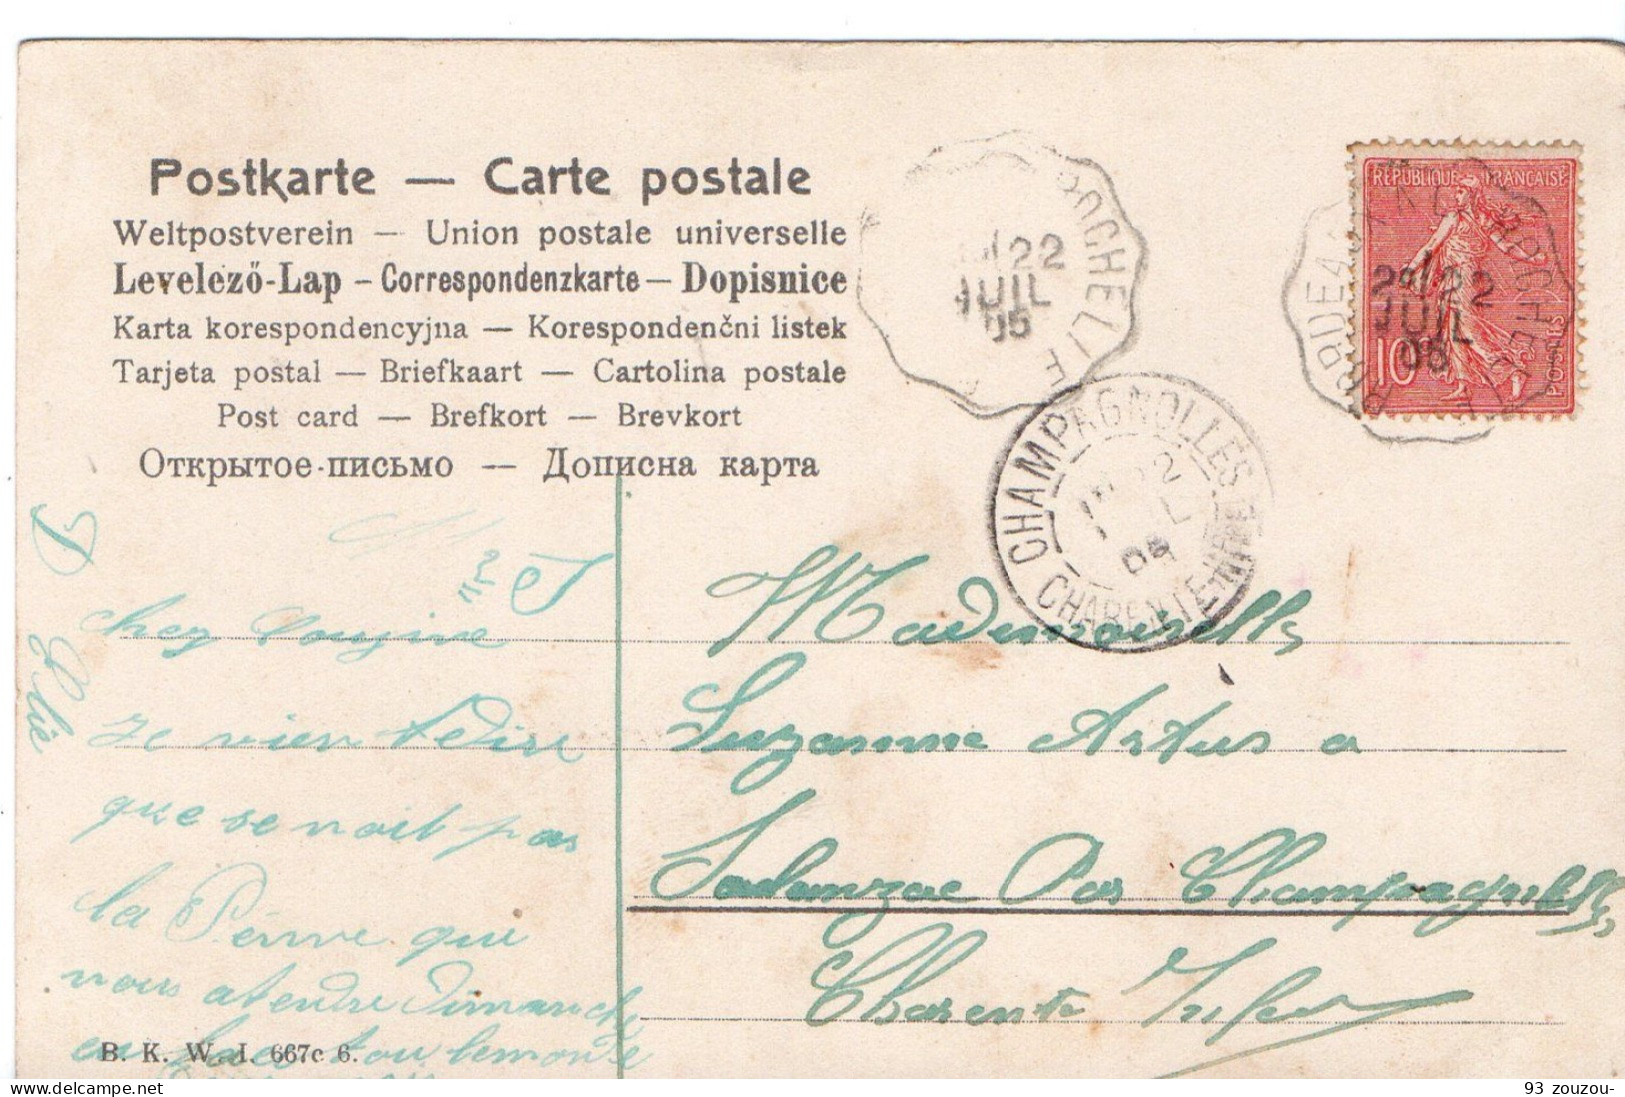 Postkarte — Carte postale
Weltpostverein — Union postale universelle
Levelező-Lap – Correspondenzkarte – Dopisnice
Karta korespondencyjna — Korespondenčni listek
Tarjeta postal — Briefkaart — Cartolina postale
Post card — Brefkort — Brevkort
Открытое-письмо — Дописна карта
ROCHELLE
22
JUIL
05
RÉPUBLIQUE FRANÇAISE
10
POSTES
22
JUIL
05
CHAMPAGNOLLES
CHARENTE-INFRE
chez Cousine
Je vien te dire
que se noit pas
la Penne qui
nous atendre Dimanche
tou lemonde
Mademoiselle
Suzanne Artus a
Sadanzac Par Champagnolles
Charente Infer
B. K. W. I. 667c 6.
93 zouzou-